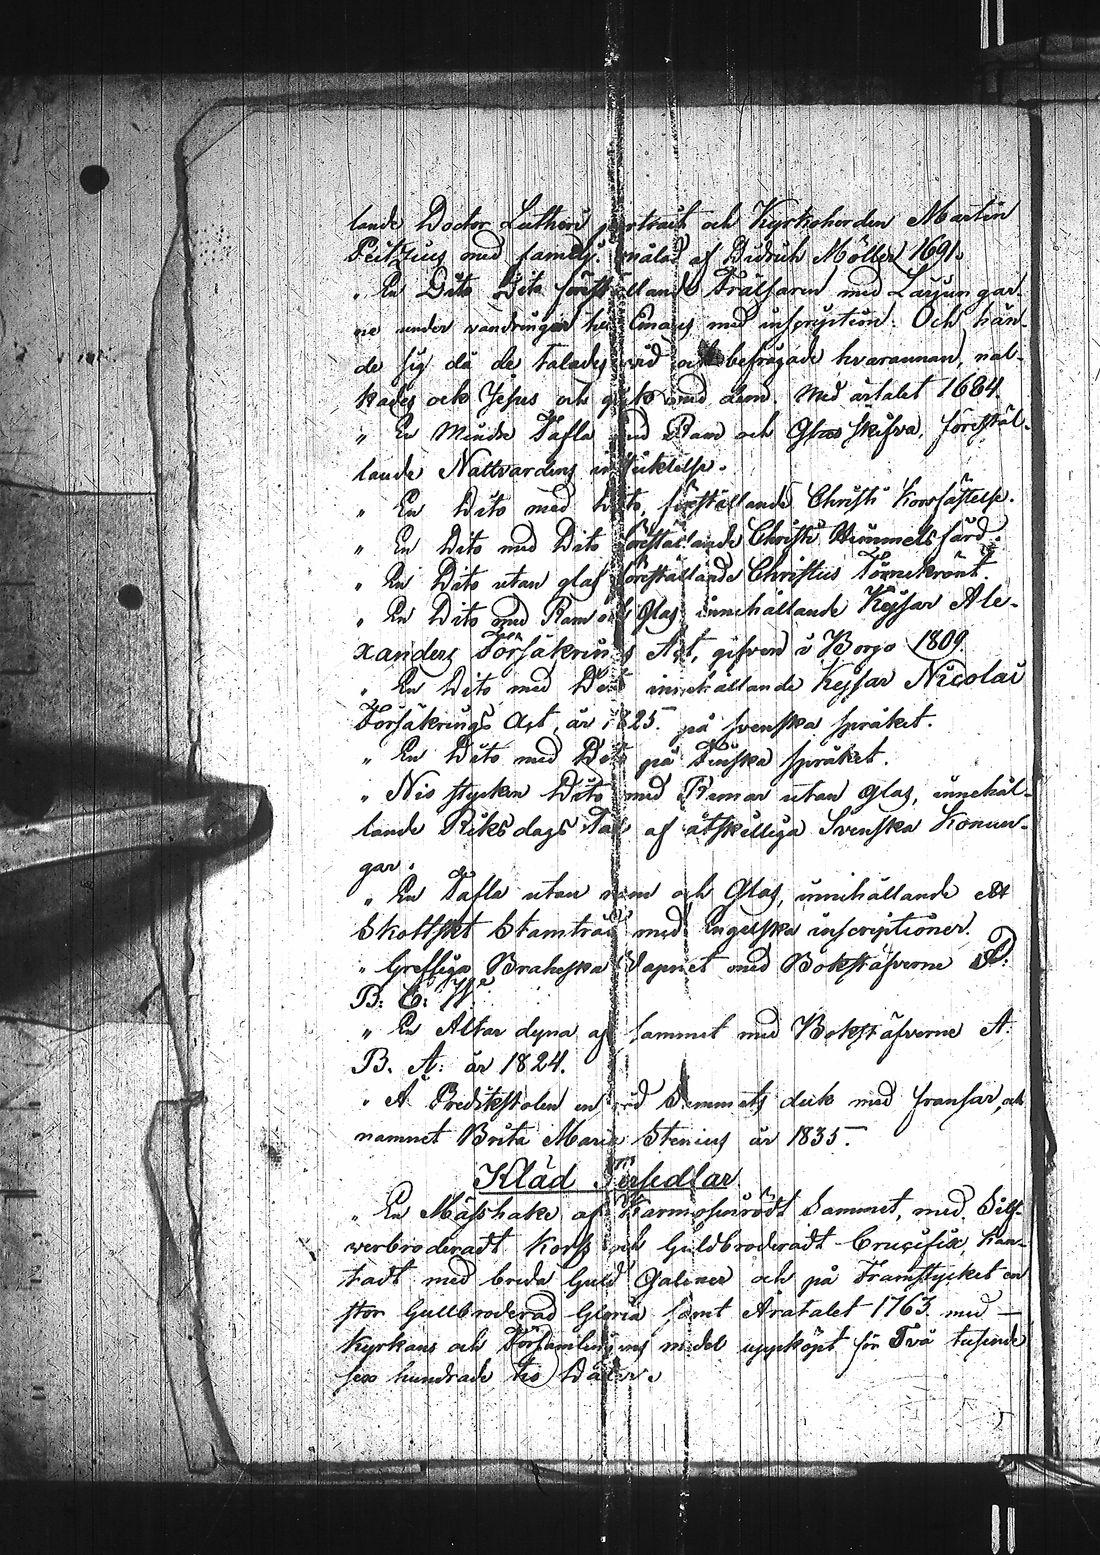 lande Doctor Lutheri portrait och Kyrkoherden Martin
Peitzius med familj. målad af Didrich Möller 1691.
" En Dito Dito föreställande Frälsaren med Lärjungar-
ne under vandringen till Emaus med inscription: Och hän-
de sig då de talades vid och befrågade hvarannan, nal-
kades ock Jesus och gick med dem. Med årtalet 1684.
" En Mindre Tafla med Ram och Glas skifva, förestäl-
lande Nattvardens instiktelse.
" En Dito med Dito, föreställande Christi Korsfästelse.
" En Dito med Dito föreställande Christi Himmelsfärd.
" En Dito utan glas föreställande Christus Törnekrönt.
" En Dito med Ram och Glas innehållande Kejsar Ale-
xanders Försäkrings Act, gifven i Borgo 1809.
" En Dito med Dito innehållande Kejsar Nicolai
Försäkrings Act, år 1825. på svenska språket.
" En Dito med Dito på Finska språket.
" Nio stycken Dito med Ramar utan glas, innehål-
lande Riksdags Tal af åtskilliga Svenska Konun-
gar.
" En Tafla utan ram och Glas, innehållande ett
Skottskt Stamträd med Engelska inscriptioner.
" Greffliga Braheska Vapnet med Bokstäfverne P:
B: C: W
" En Altar dyna af Sammet med Bokstäfverne A:
B. A: år 1824.
" Å Predikstolen en röd Sammets duk med fransar, och
namnet Brita Maria Stenius år 1835.
Kläd Persedlar
" En Mässhake af Karmosinrödt Sammet, med Silf-
verbroderadt Korss och Guldbroderadt Crucifix, kan-
tadt med breda Guld Galoner och på Framstycket en
stor Gullbroderad Gloria samt Åratalet 1763 med —
Kyrkans och Församlingens medel uppköpt för Två tusende
sex hundrade tio Daler.